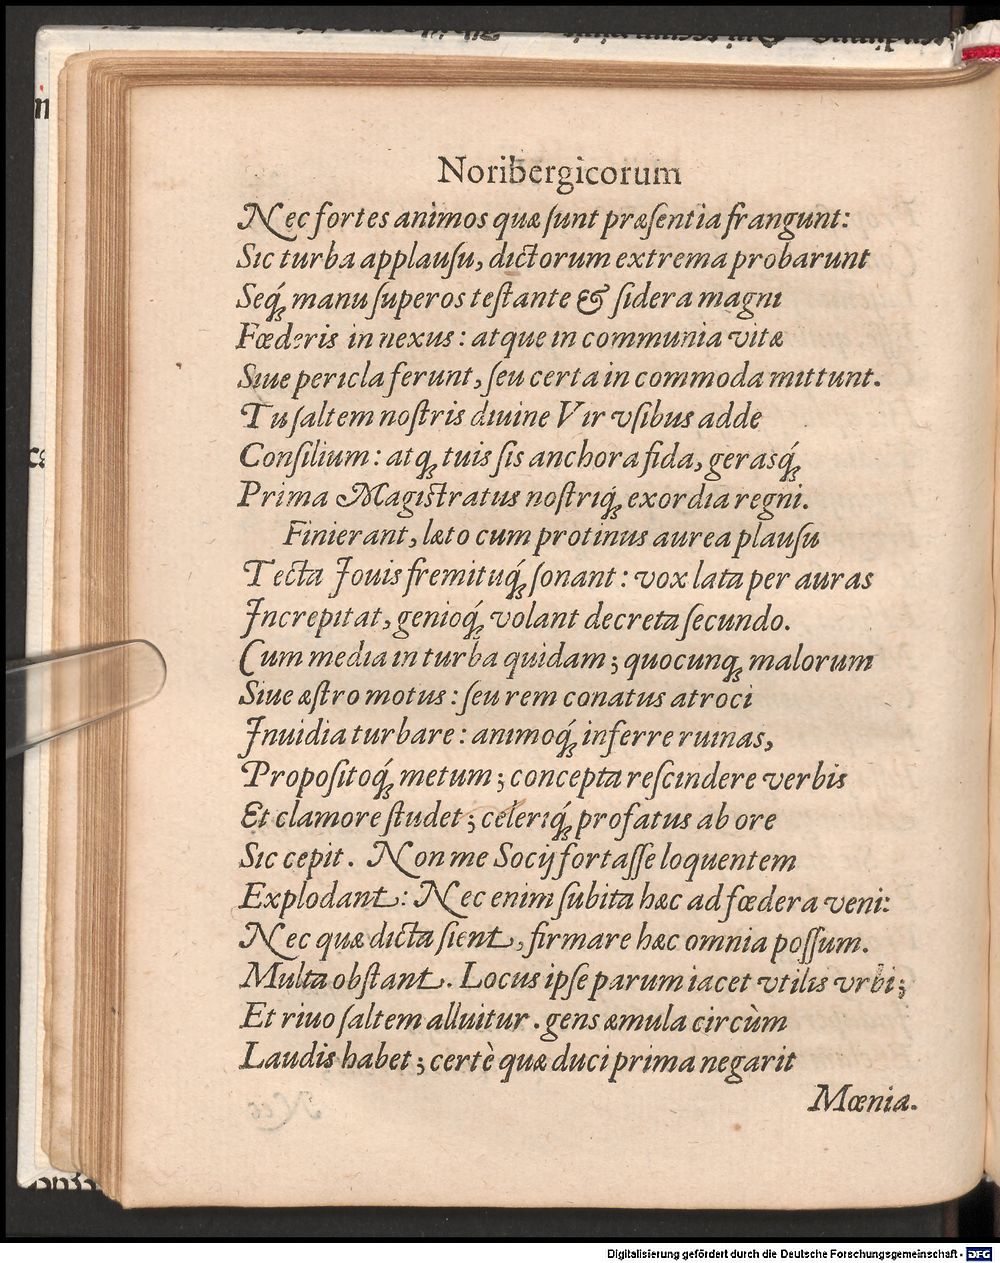 Noribergicorum
Nec fortes animos quæ ſunt præſentia frangunt:
Sic turba applauſu, dictorum extrema probarunt
Seq́; manu ſuperos teſtante & ſidera magni
Fœderis in nexus: atque in communia vitæ
Siue pericla ferunt, ſeu certa in commoda mittunt.
Tu ſaltem noſtris diuine Vir vſibus adde
Conſilium: atq; tuis ſis anchora fida, gerasq́;
Prima Magiſtratus noſtriq́; exordia regni.
Finierant, læto cum protinus aurea plauſu
Tecta Jouis fremituq́; ſonant: vox lata per auras
Increpitat, genioq́; volant decreta ſecundo.
Cum media in turba quidam; quocunq; malorum
Siue æſtro motus: ſeu rem conatus atroci
Inuidia turbare: animoq́; inferre ruinas,
Propoſitoq́; metum; concepta reſcindere verbis
Et clamore ſtudet; celeriq́; profatus ab ore
Sic cepit. Non me Socij fortaſſe loquentem
Explodant: Nec enim ſubita hæc ad fœdera veni:
Nec quæ dicta ſient, firmare hæc omnia poſſum.
Multa obſtant. Locus ipſe parum iacet vtilis vrbi;
Et riuo ſaltem alluitur. gens æmula circùm
Laudis habet; certè quæ duci prima negarit
Mœnia.
Digitalisierung gefördert durch die Deutsche Forschungsgemeinschaft - DFG